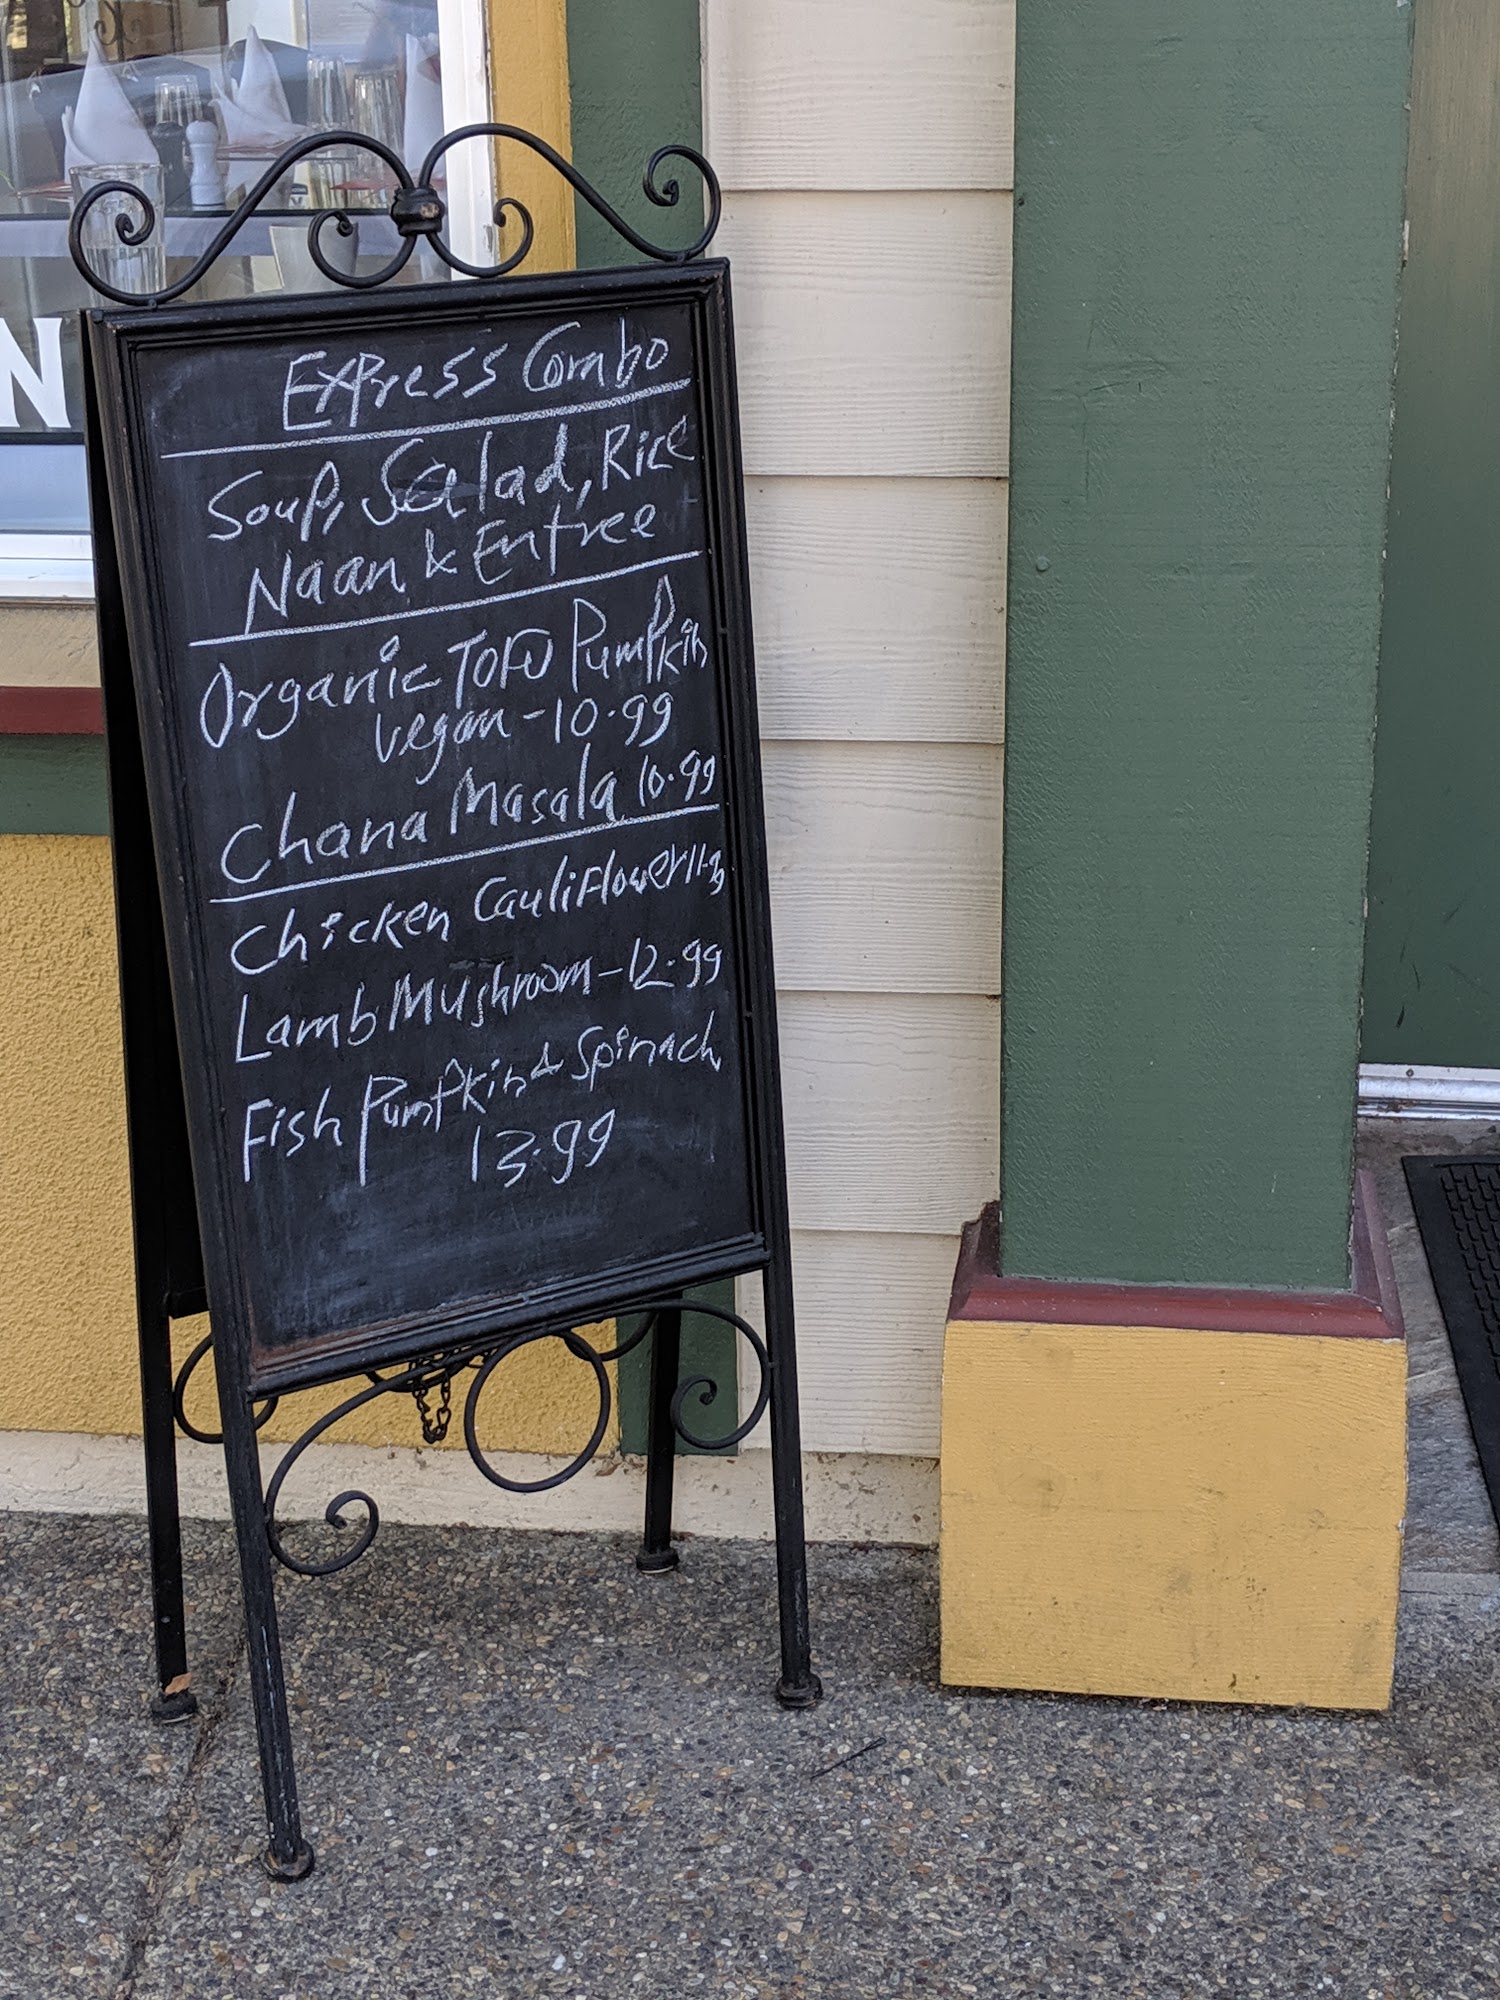 Express Combo
Soup, Salad, Rice
Naan & Entree
Organic Tofu Pumpkin
Vegan - 10.99
Chana Masala 10.99
Chicken Cauliflower
Lamb Mushroom - 12.99
Fish Pumpkin & Spinach
13.99
N